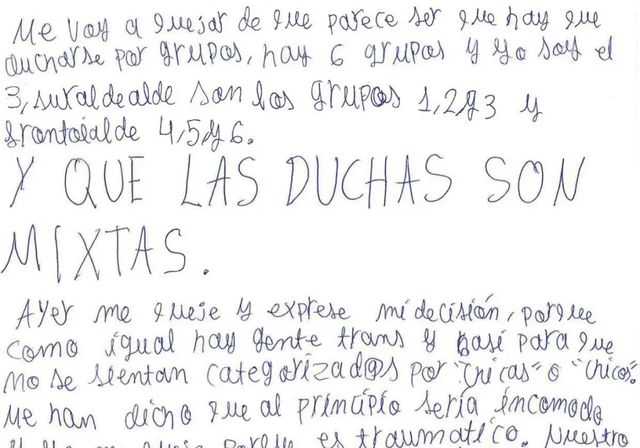 Me voy a quejar de que parece ser que hay que
ducharse por grupos, hay 6 grupos y yo soy el
3, suraldealde son los grupos 1,2y3 y
frontoialde 4,5y6.
Y QUE LAS DUCHAS SON
MIXTAS.
Ayer me queje y exprese mi decisión, porque
como igual hay gente trans y pasi para que
no se sientan categorizad@s por "chicas" o "chicos".
Me han dicho que al principio sería incomodo
porque es traumatico. Nuestro